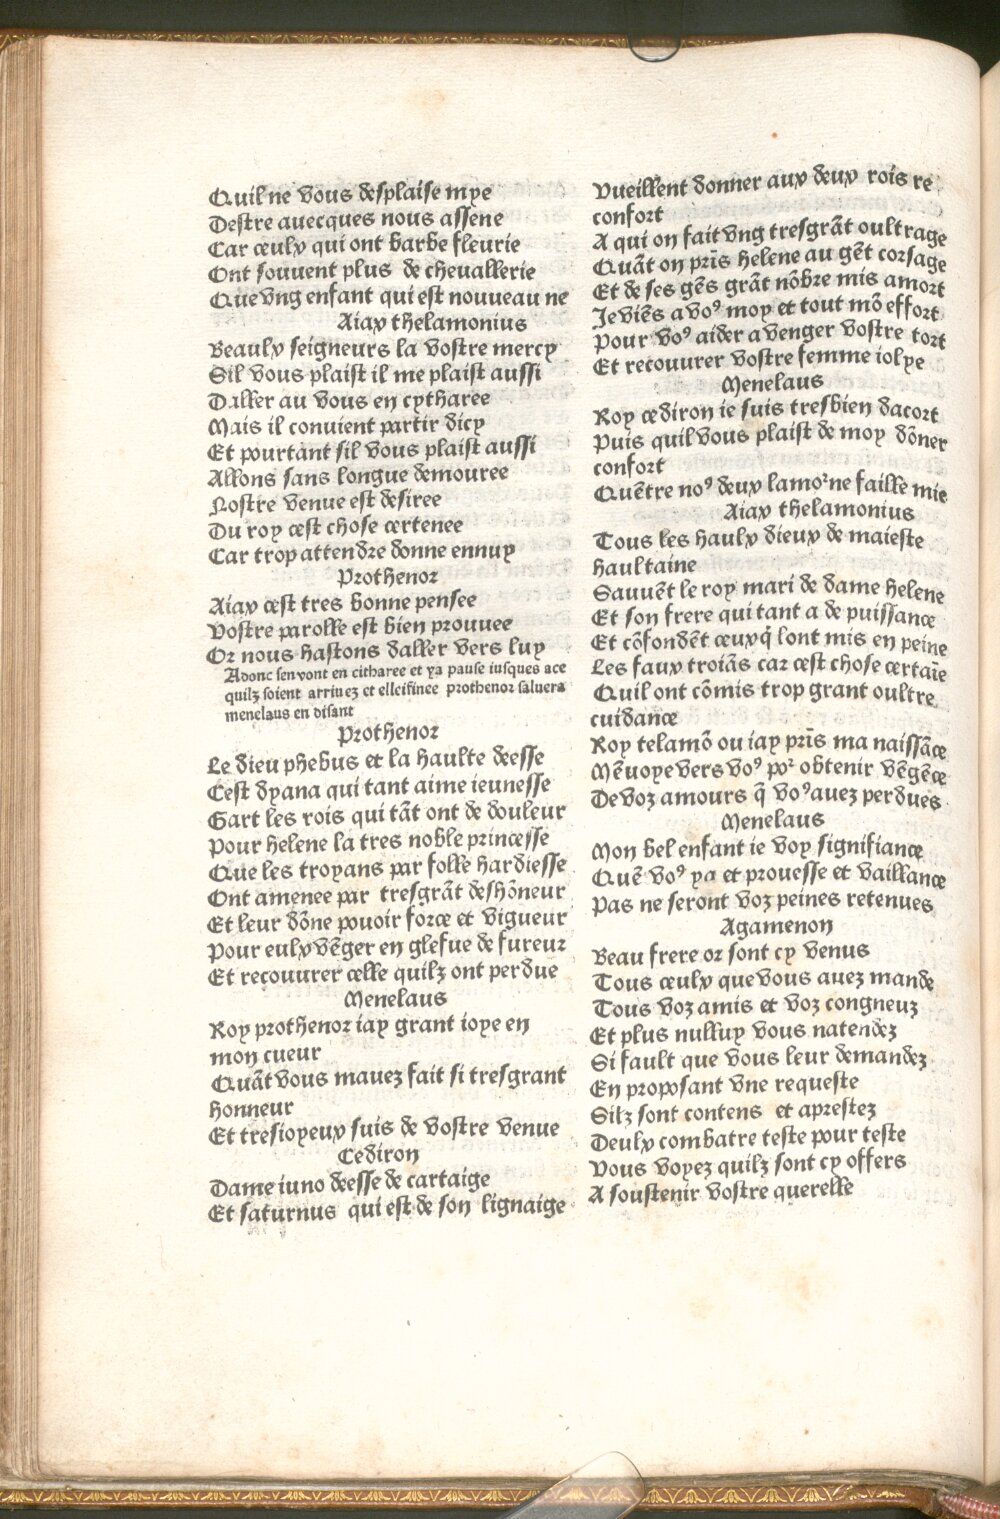 Quil ne vous desplaise mye
Destre auecques nous assene
Car ceulx qui ont barbe fleurie
Ont souuent plus de cheuallerie
Que vng enfant qui est nouueau ne
Aiax thelamonius
Beaulx seigneurs la vostre mercy
Sil vous plaist il me plaist aussi
Daller au vous en cytharee
Mais il conuient partir dicy
Et pourtant sil vous plaist aussi
Allons sans longue demouree
Nostre venue est desiree
Du roy cest chose certenee
Car trop attendre donne ennuy
Prothenor
Aiax cest tres bonne pensee
Vostre parolle est bien prouuee
Or nous hastons daller vers luy
Adonc sen vont en citharee et ya pause iusques ace
quilz soient arriuez et elleifinee prothenor saluera
menelaus en disant
Prothenor
Le dieu phebus et la haulte deesse
Cest dyana qui tant aime ieunesse
Gart les rois qui tãt ont de douleur
Pour helene la tres noble princesse
Que les troyans par folle hardiesse
Ont amenee par tresgrãt deshõneur
Et leur dõne pouoir force et vigueur
Pour eulx vẽger en glefue de fureur
Et recouurer celle quilz ont perdue
Menelaus
Roy prothenor iay grant ioye en
mon cueur
Quãt vous mauez fait si tresgrant
honneur
Et tresioyeux suis de vostre venue
Cediron
Dame iuno deesse de cartaige
Et saturnus qui est de son lignaige
Vueillent donner aux deux rois re
confort
A qui on fait vng tresgrãt oultrage
Quãt on pris helene au gẽt corsage
Et de ses gẽs grãt nõbre mis amort
Ie viẽs a voꝰ moy et tout mõ effort
Pour voꝰ aider a venger vostre tort
Et recouurer vostre femme iolye
Menelaus
Roy cediron ie suis tresbien dacort
Puis quil vous plaist de moy dõner
confort
Quẽtre noꝰ deux lamoᷣ ne faille mie
Aiax thelamonius
Tous les haulx dieux de maieste
haultaine
Sauuẽt le roy mari de dame helene
Et son frere qui tant a de puissance
Et cõfondẽt ceuxq̃ lont mis en peine
Les faux troiãs car cest chose certaĩe
Quil ont cõmis trop grant oultre
cuidance
Roy telamõ ou iay pris ma naissãce
Mẽuoye vers voꝰ poᷣ obtenir vẽgẽce
De voz amours q̃ voꝰ auez perdues
Menelaus
Mon bel enfant ie voy signifiance
Quẽ voꝰ ya et prouesse et vaillance
Pas ne seront voz peines retenues
Agamenon
Beau frere or sont cy venus
Tous ceulx que vous auez mande
Tous voz amis et voz congneuz
Et plus nulluy vous natendez
Si fault que vous leur demandez
En proposant vne requeste
Silz sont contens et aprestez
Deulx combatre teste pour teste
Vous voyez quilz sont cy offers
A soustenir vostre querelle